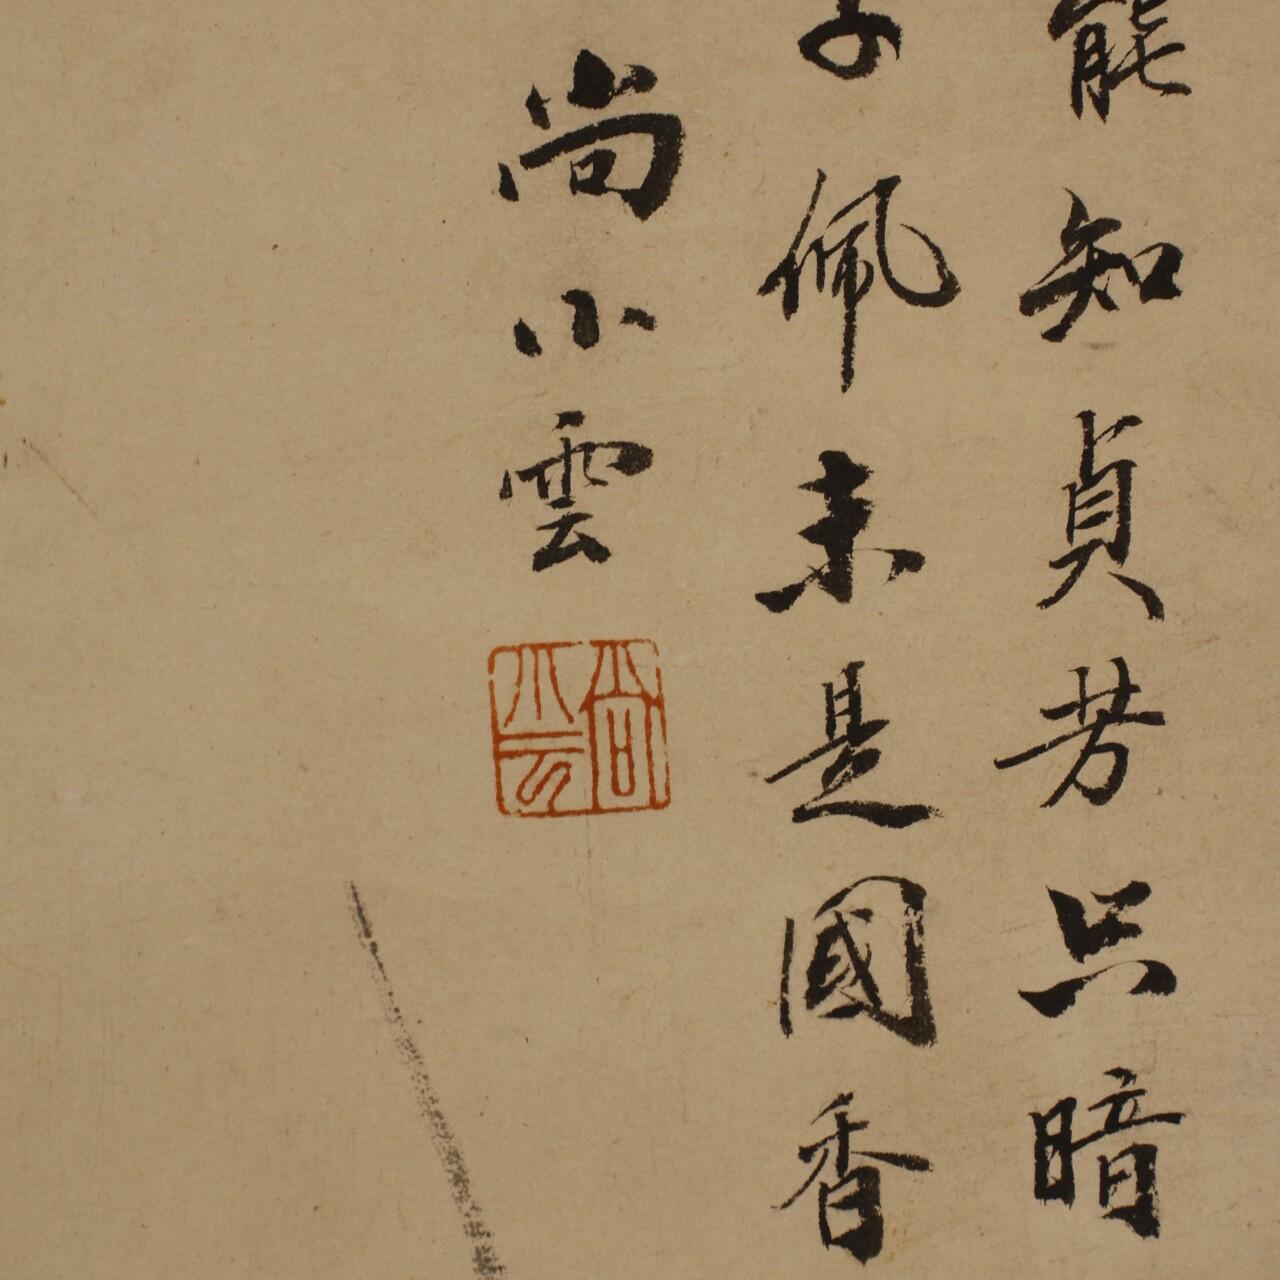 能知貞芳只暗
子佩未是國香
尚小雲
尚小云